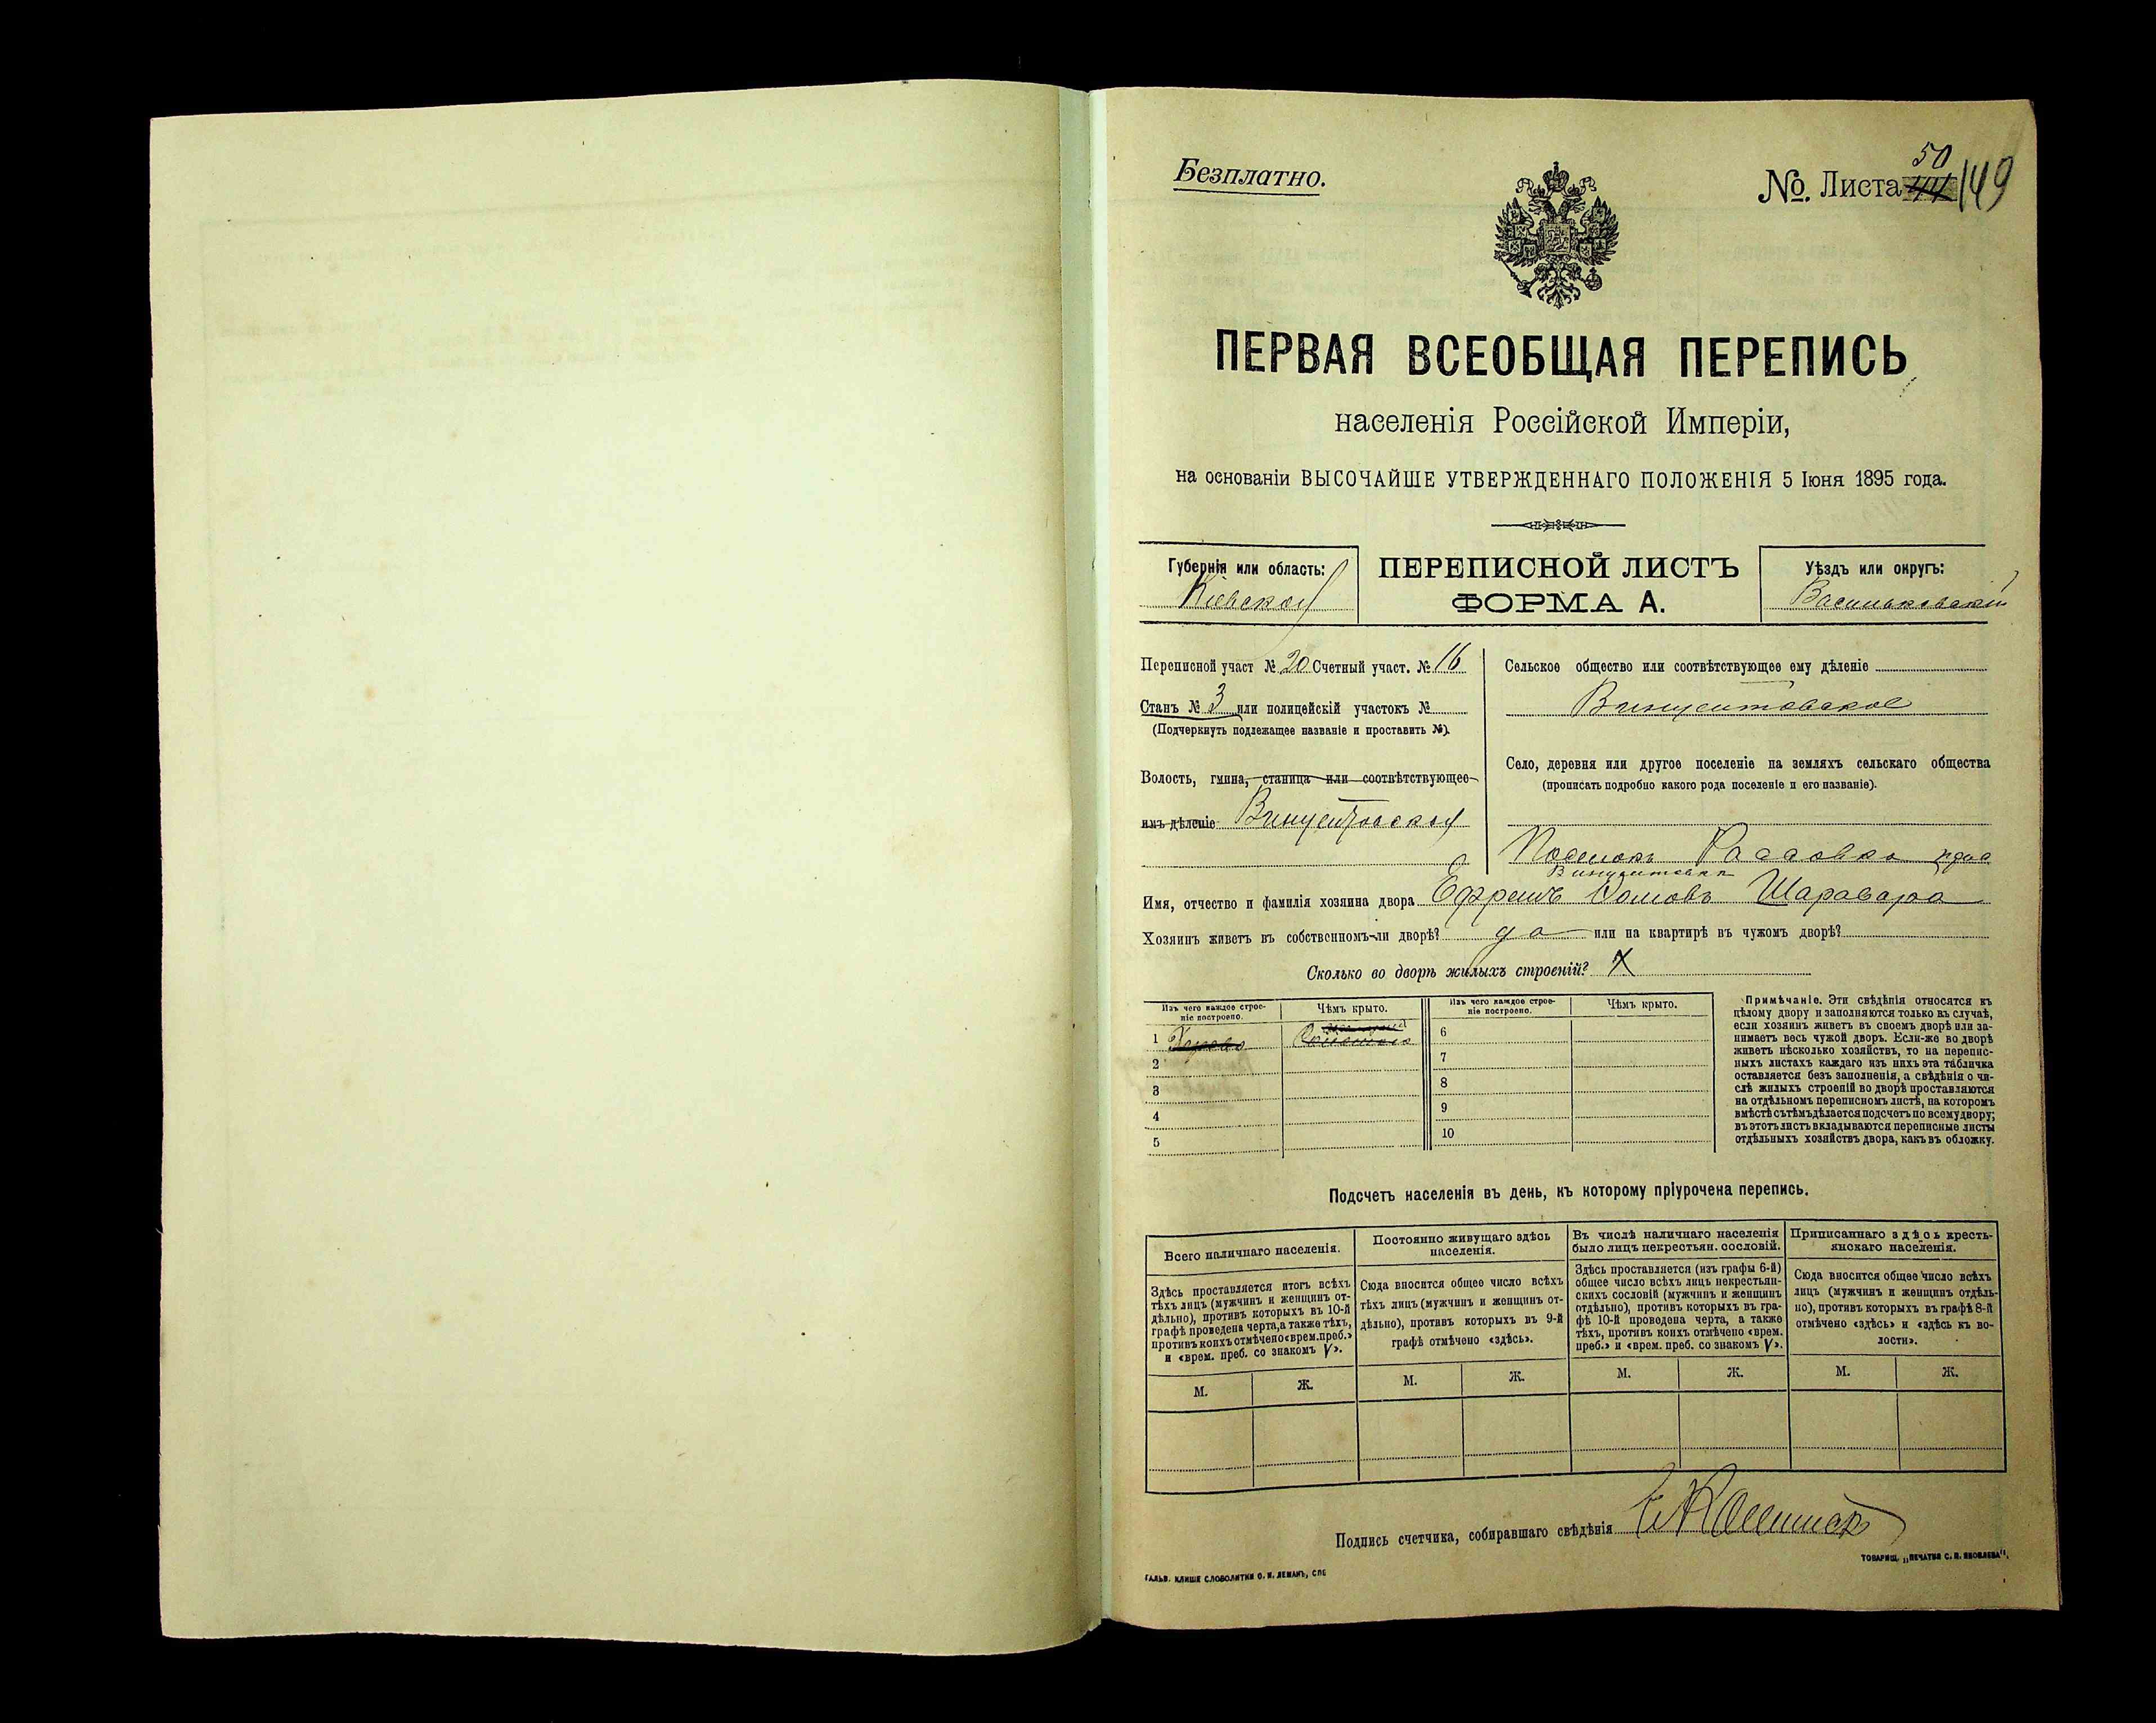 Безплатно.
№. Листа 50 149
ПЕРВАЯ ВСЕОБЩАЯ ПЕРЕПИСЬ
населенія Россійской Имперіи,
на основаніи ВЫСОЧАЙШЕ УТВЕРЖДЕННАГО ПОЛОЖЕНІЯ 5 Іюня 1895 года.
Губернія или область:
Кіевская
ПЕРЕПИСНОЙ ЛИСТЪ
ФОРМА А.
Уѣздъ или округъ:
Васильковскій
Переписной участ № 20 Счетный участ. № 16
Станъ № 3 или полицейскій участокъ №
(Подчеркнуть подлежащее названіе и проставить №).
Волость, гмина, станица или соотвѣтствующее
имъ дѣленіе Винцентовская
Сельское общество или соотвѣтствующее ему дѣленіе
Винцентовское
Село, деревня или другое поселеніе на земляхъ сельскаго общества
(прописать подробно какого рода поселеніе и его названіе).
Поселокъ
Имя, отчество и фамилія хозяина двора Ефремъ Шаравара
Хозяинъ живетъ въ собственномъ-ли дворѣ? да или на квартирѣ въ чужомъ дворѣ?
Сколько во дворѣ жилыхъ строеній?
Изъ чего каждое строе-
ніе построено.
Чѣмъ крыто.
Изъ чего каждое строе-
ніе построено.
Чѣмъ крыто.
1
2
3
4
5
6
7
8
9
10
Примѣчаніе. Эти свѣдѣнія относятся къ
цѣлому двору и заполняются только въ случаѣ,
если хозяинъ живетъ въ своемъ дворѣ или за-
нимаетъ весь чужой дворъ. Если-же во дворѣ
живетъ нѣсколько хозяйствъ, то на перепис-
ныхъ листахъ каждаго изъ нихъ эта табличка
оставляется безъ заполненія, а свѣдѣнія о чи-
слѣ жилыхъ строеній во дворѣ проставляются
на отдѣльномъ переписномъ листѣ, на которомъ
вмѣстѣ съ тѣмъ дѣлается подсчетъ по всему двору;
въ этотъ листъ вкладываются переписные листы
отдѣльныхъ хозяйствъ двора, какъ въ обложку.
Подсчетъ населенія въ день, къ которому пріурочена перепись.
Всего наличнаго населенія.
Здѣсь проставляется итогъ всѣхъ
тѣхъ лицъ (мужчинъ и женщинъ от-
дѣльно), противъ которыхъ въ 10-й
графѣ проведена черта, а также тѣхъ,
противъ коихъ отмѣчено «врем. преб.»
и «врем. преб. со знакомъ V».
М. Ж.
Постоянно живущаго здѣсь
населенія.
Сюда вносится общее число всѣхъ
тѣхъ лицъ (мужчинъ и женщинъ от-
дѣльно), противъ которыхъ въ 9-й
графѣ отмѣчено «здѣсь».
М. Ж.
Въ числѣ наличнаго населенія
было лицъ некрестьян. сословій.
Здѣсь проставляется (изъ графы 6-й)
общее число всѣхъ лицъ некрестьян-
скихъ сословій (мужчинъ и женщинъ
отдѣльно), противъ которыхъ въ гра-
фѣ 10-й проведена черта, а также
тѣхъ, противъ коихъ отмѣчено «врем.
преб.» и «врем. преб. со знакомъ V».
М. Ж.
Приписаннаго здѣсь кресть-
янскаго населенія.
Сюда вносится общее число всѣхъ
лицъ (мужчинъ и женщинъ отдѣль-
но), противъ которыхъ въ графѣ 8-й
отмѣчено «здѣсь» и «здѣсь къ во-
лости».
М. Ж.
Подпись счетчика, собиравшаго свѣдѣнія
ТОВАРИЩ. „ПЕЧАТНЯ С. П. ЯКОВЛЕВА".
ГАЛЬВ. КЛИШЕ СЛОВОЛИТНИ О. И. ЛЕМАНЪ, СПБ